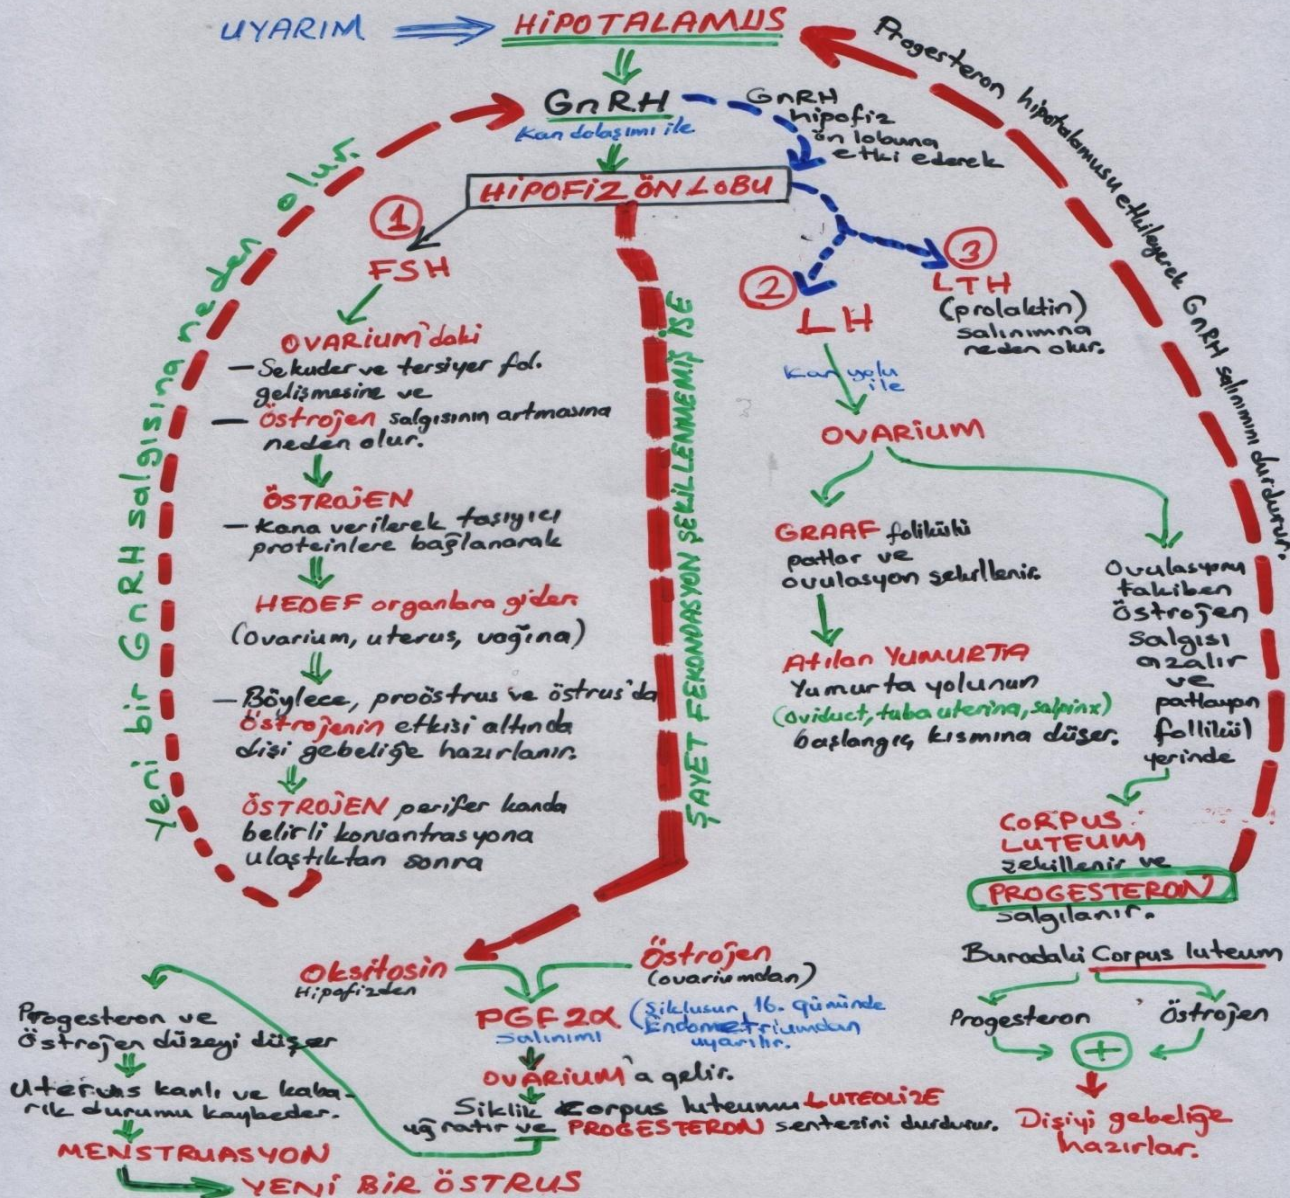 UYARIM
HİPOTALAMUS
GnRH
Kan dolaşımı ile
GnRH
hipofiz
ön lobuna
etki ederek
HİPOFİZ ÖN LOBU
Progesteron hipotalamusu etkileyerek GnRH salınımını durdurur.
yeni bir GnRH salgısına neden olur.
1
FSH
OVARIUM'daki
— Sekuder ve tersiyer fol.
gelişmesine ve
— Östrojen salgısının artmasına
neden olur.
ÖSTROJEN
— Kana verilerek taşıyıcı
proteinlere bağlanarak
HEDEF organlara gider.
(Ovarium, uterus, vagina)
— Böylece, proöstrus ve östrus'da
östrojenin etkisi altında
dişi gebeliğe hazırlanır.
ÖSTROJEN perifer kanda
belirli konsantrasyona
ulaştıktan sonra
ŞAYET FEKONDASYON ŞEKİLLENMEMİŞ İSE
2
LH
3
LTH
(prolaktin)
salınımna
neden olur.
Kan yolu
ile
OVARIUM
GRAAF folikülü
patlar ve
ovulasyon şekillenir.
Atılan YUMURTA
Yumurta yolunun
(oviduct, tuba uterina, salpinx)
başlangıç kısmına düşer.
Ovulasyonu
takiben
östrojen
salgısı
azalır
ve
patlayan
follikül
yerinde
CORPUS
LUTEUM
şekillenir ve
PROGESTERON
salgılanır.
Buradaki Corpus luteum
Progesteron
Östrojen
+
Dişiyi gebeliğe
hazırlar.
Oksitosin
Hipofizden
Östrojen
(ovariumdan)
PGF2α
salınımı
(Siklusun 16. gününde
Endometriumdan
uyarılır.
OVARIUM'a gelir.
Siklik Corpus luteumu LUTEOLİZE
uğratır ve PROGESTERON sentezini durdurur.
Progesteron ve
Östrojen düzeyi düşer
Uterus kanlı ve kaba-
rık durumu kaybeder.
MENSTRUASYON
YENİ BİR ÖSTRUS